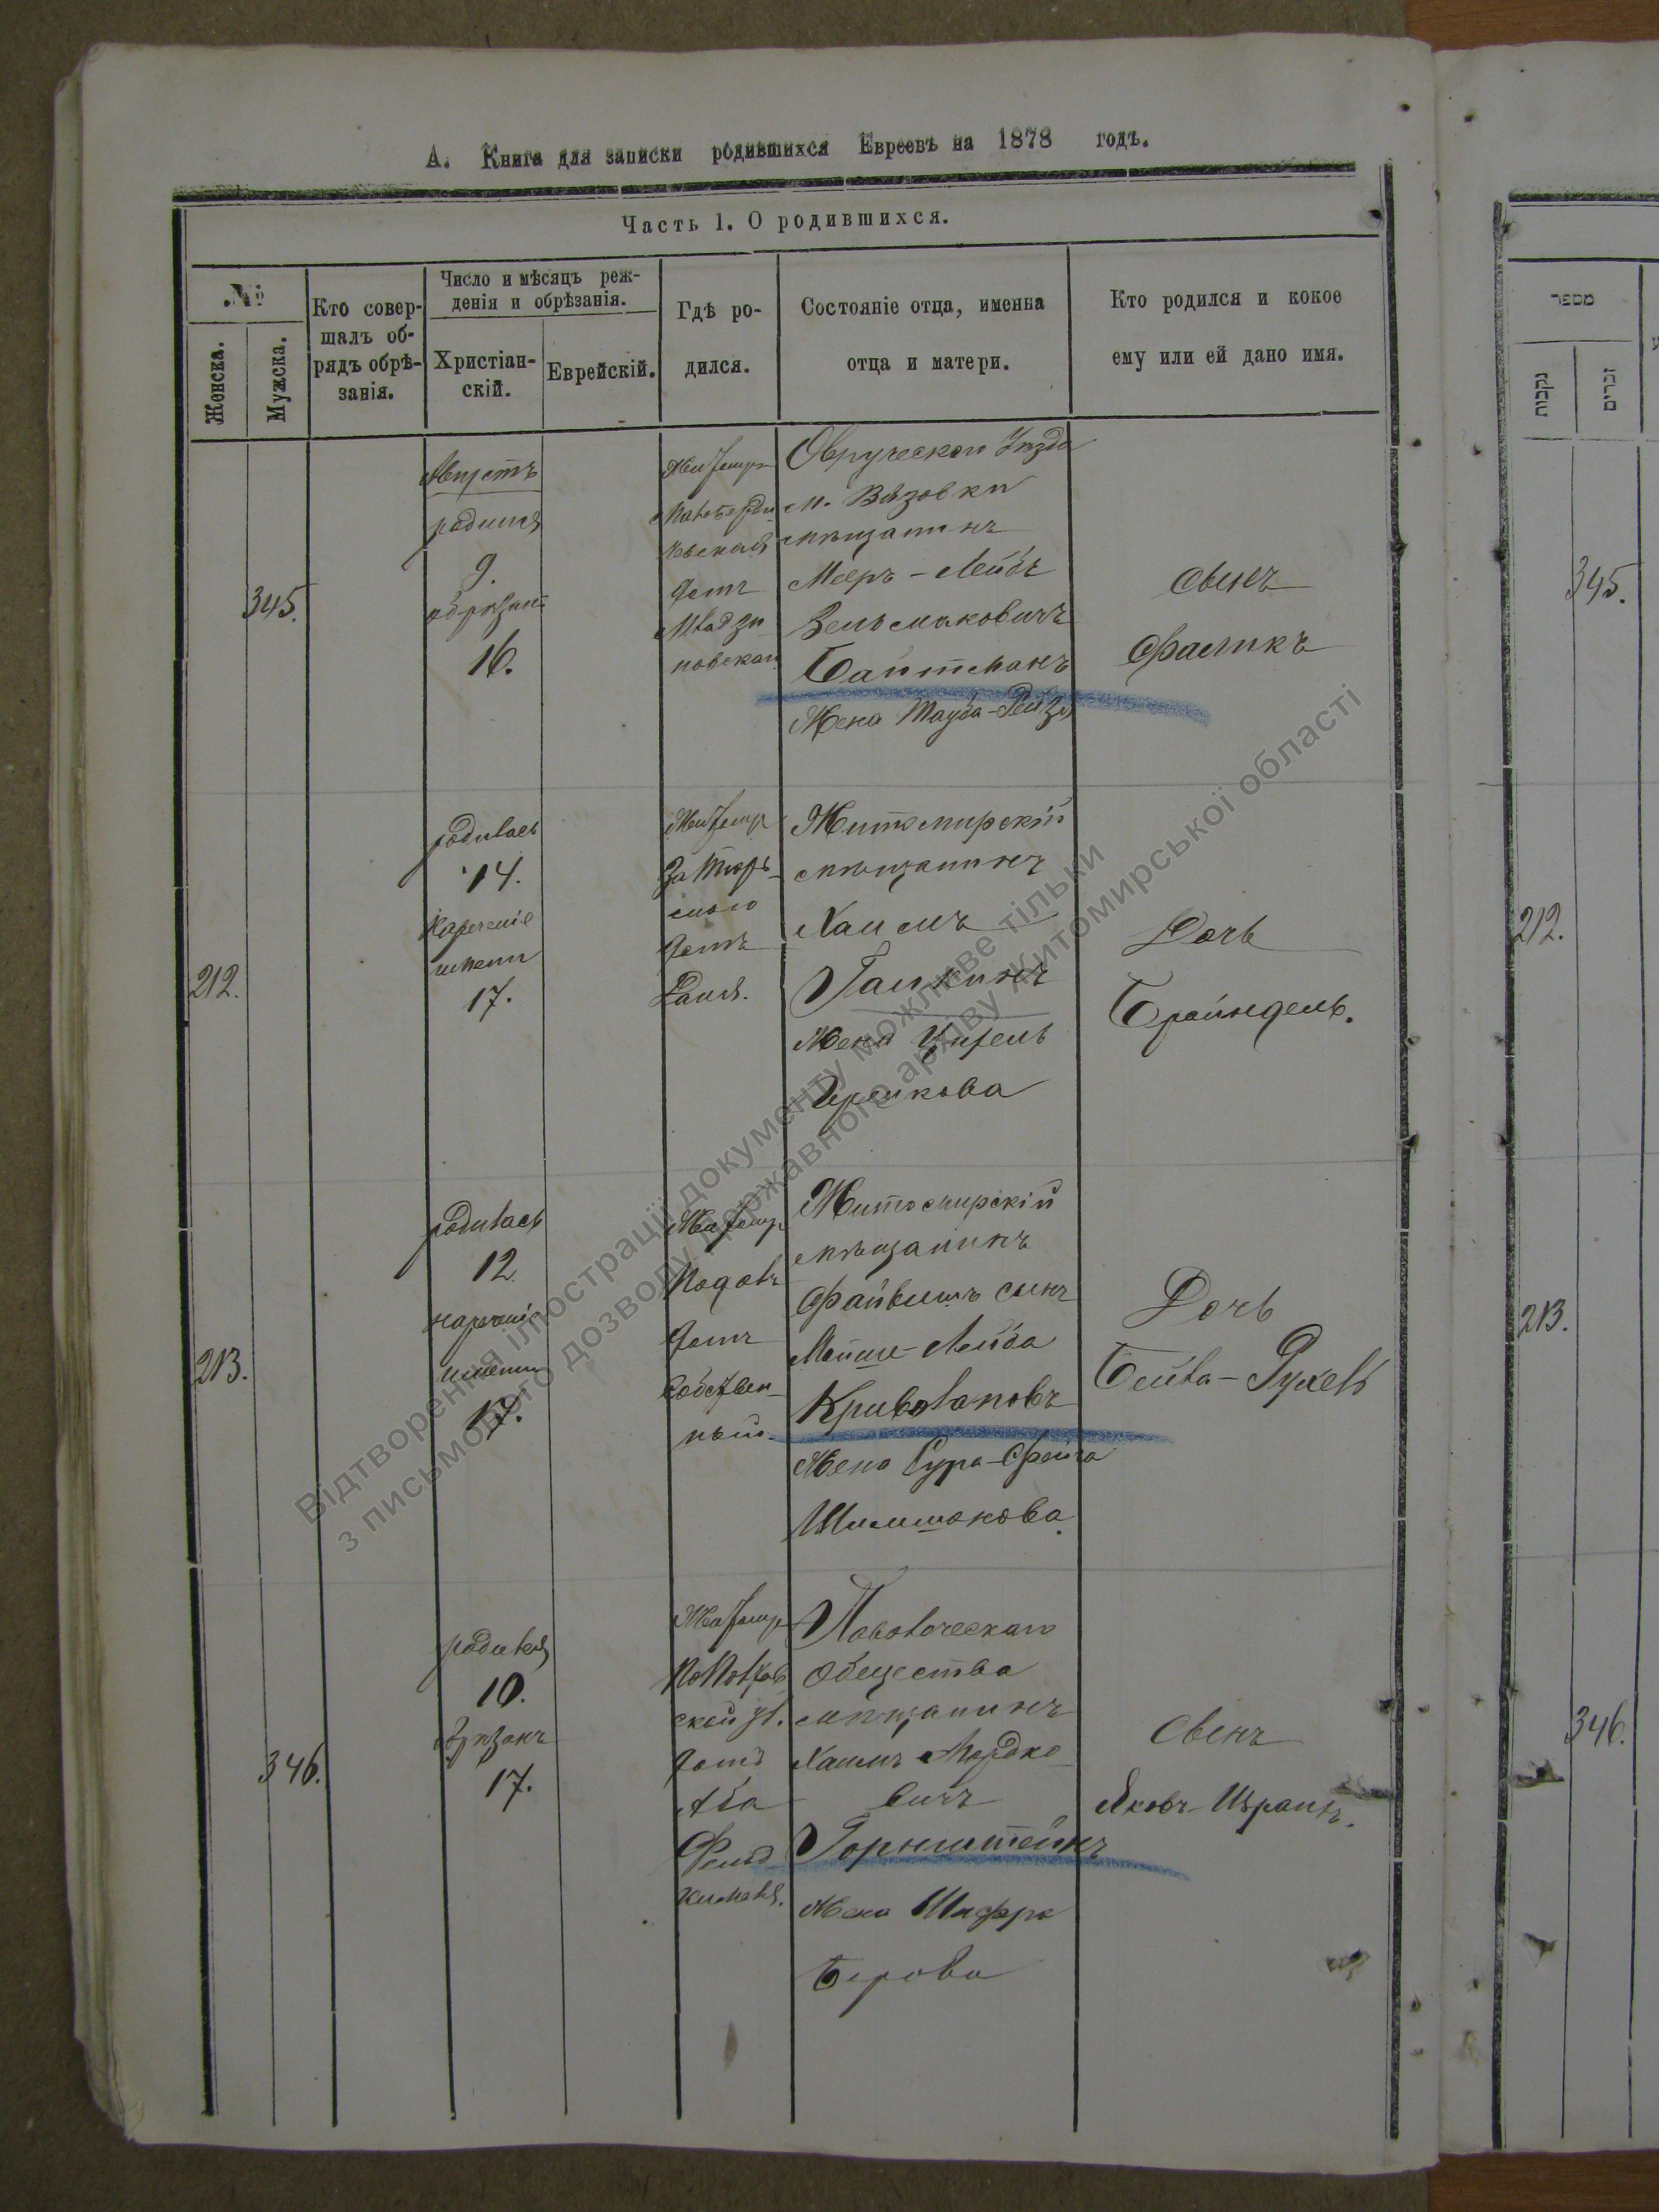 А. Книга для записки родившихся Евреевъ на 1878 годъ.
Часть 1. О родившихся.
№
Женска.
Мужска.
Кто совер-
шалъ об-
рядъ обрѣ-
занія.
Число и мѣсяцъ реж-
денія и обрѣзанія.
Христіан-
скій.
Еврейскій.
Гдѣ ро-
дился.
Состояніе отца, именна
отца и матери.
Кто родился и кокое
ему или ей дано имя.
345.
Августъ
родился
9.
обрѣзанъ
16.
Житомир
домъ
Овручскаго Уѣзда
м. Вязовки
мѣщанинъ
Мееръ-Лейбъ
Зельмановичъ
Байтманъ
Жена Тауба-Рейзя
Сынъ
Фаликъ
212.
родилась
14.
Наречение
имени
17.
Житомир
домъ
Житомирскій
мѣщанинъ
Хаимъ
Галкинъ
Жена Ципель
Дочь
Брайндель.
213.
родилась
12.
наречение
имени
17.
Житомир
домъ
Собствен-
ный.
Житомирскій
мѣщанинъ
Файвишъ сынъ
Мойше-Лейба
Криволаповъ
Жена Сура-Фейга
Шимшокова
Дочь
Бейла-Рухель
346.
родился
10.
обрѣзанъ
17.
Житомир
ской ул.
домъ
Аба
Паволоческаго
Общества
мѣщанинъ
Хаимъ Мордко-
вичъ
Горнштейнъ
Жена Шифра
Берова
Сынъ
Яковъ-Израиль.
מספר
נקבות
זכרים
345.
212.
213.
346.
Відтворення ілюстрації документу можливе тільки
з письмового дозволу Державного архіву Житомирської області